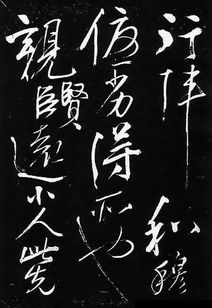 行陣和穆
優劣得所也
親賢遠小人此先